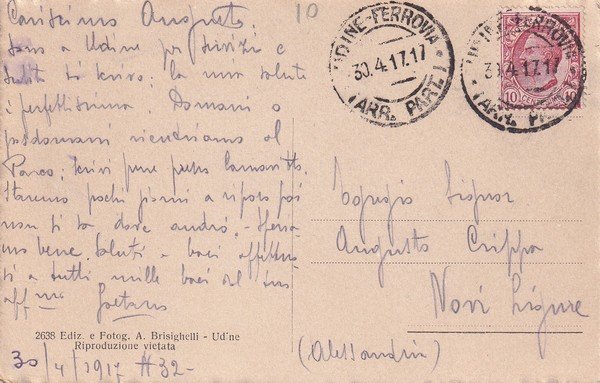 Carissimo Augusto.
Sono a Udine per servizi e
subito ti scrivo: la mia salute
è perfettissima. Domani o
posdomani ritorniamo al
Parco; scrivi pure
Staremo pochi giorni a riposo poi
non si sa dove andrò. -
bene. Saluti e baci
a tutti mille baci dal tuo
aff.mo Gaetano
2638 Ediz. e Fotog. A. Brisighelli - Udine
Riproduzione vietata
30/4/1917 #32-
10
UDINE-FERROVIA
30.4.17.17
(ARR. PART.)
UDINE-FERROVIA
30.4.17.17
(ARR. PART.)
10 10
Egregio Signor
Augusto Crippa
Novi Ligure
(Alessandria)